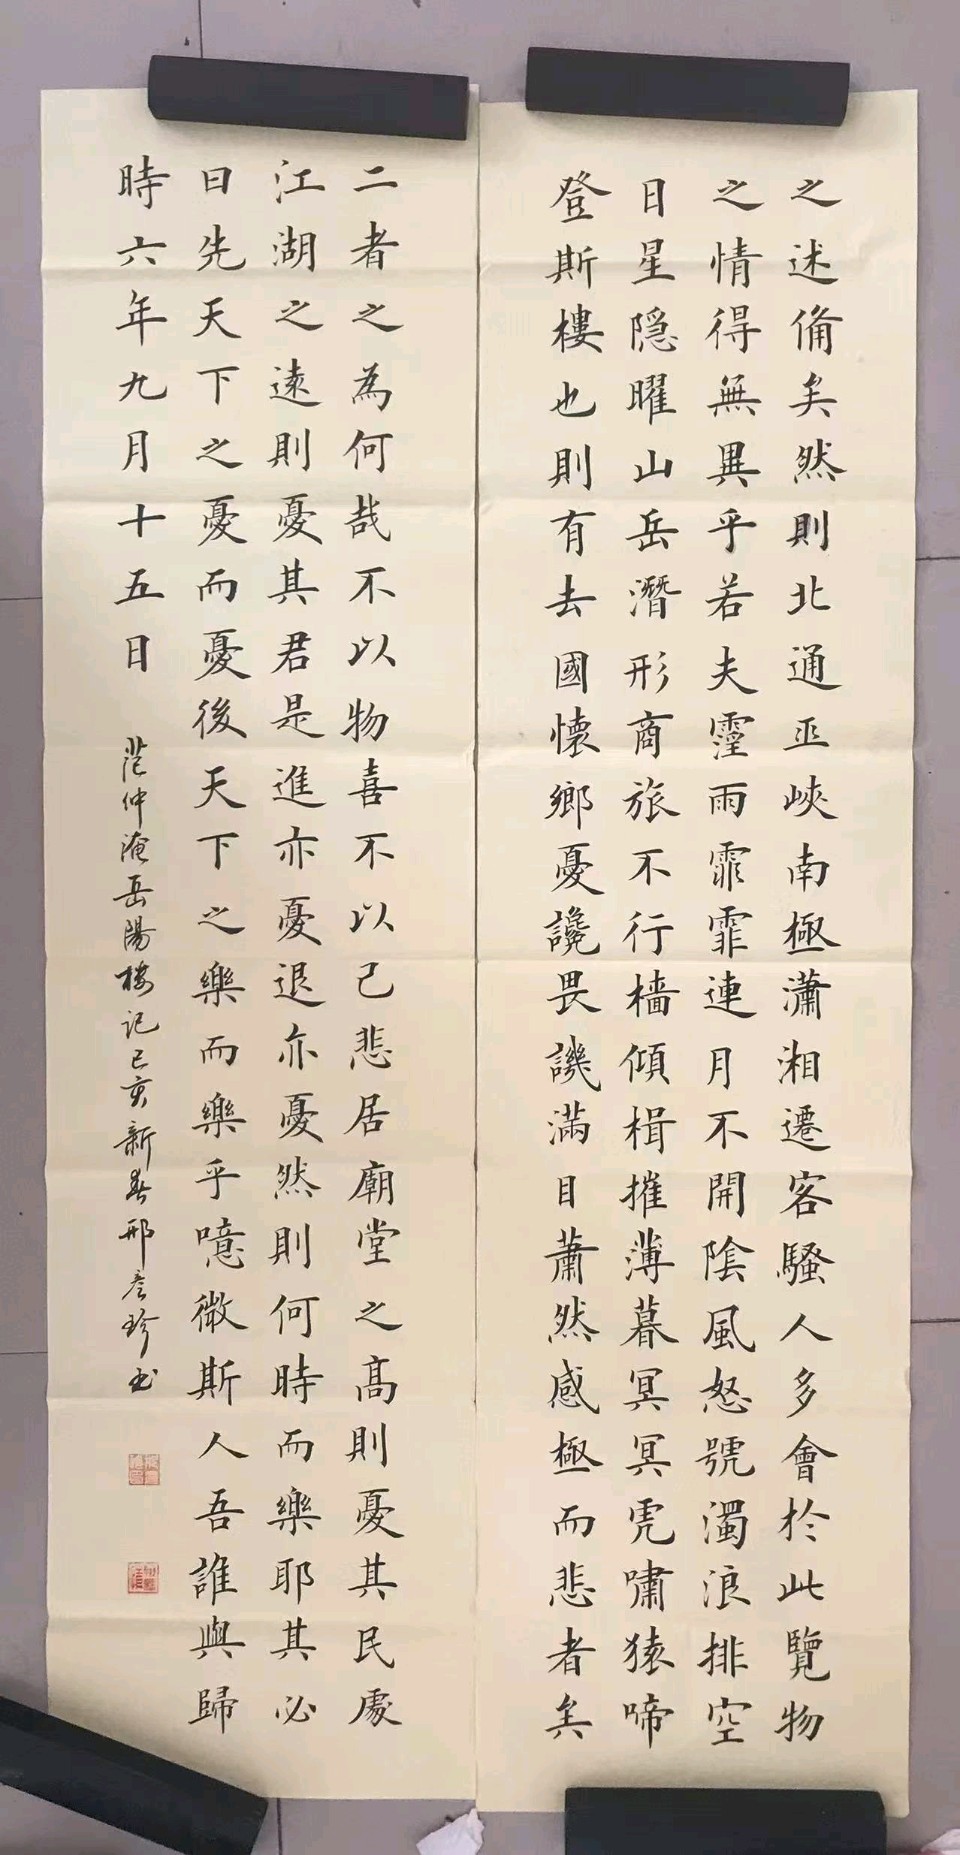 之述備矣然則北通巫峽南極瀟湘遷客騷人多會於此覽物
之情得無異乎若夫霪雨霏霏連月不開陰風怒號濁浪排空
日星隐曜山岳潛形商旅不行檣傾楫摧薄暮冥冥虎嘯猿啼
登斯樓也則有去國懷鄉憂讒畏譏滿目蕭然感極而悲者矣
二者之為何哉不以物喜不以己悲居廟堂之高則憂其民處
江湖之遠則憂其君是進亦憂退亦憂然則何時而樂耶其必
曰先天下之憂而憂後天下之樂而樂乎噫微斯人吾誰與歸
時六年九月十五日 范仲淹岳陽樓记己亥新春邢彥珍书